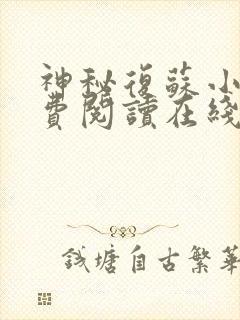 神秘復蘇小
費閱讀在綫
錢塘自古繁華